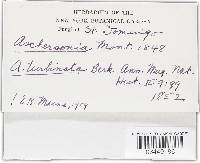 HERBARIUM OF THE
NEW YORK BOTANICAL GARDEN
Fungi of St. Domingo
Aschersonia Mont. 1848
A. turbinata Berk. Ann. Mag. Nat.
Hist. II 9:189
1852
! E.B. Mains, 1959